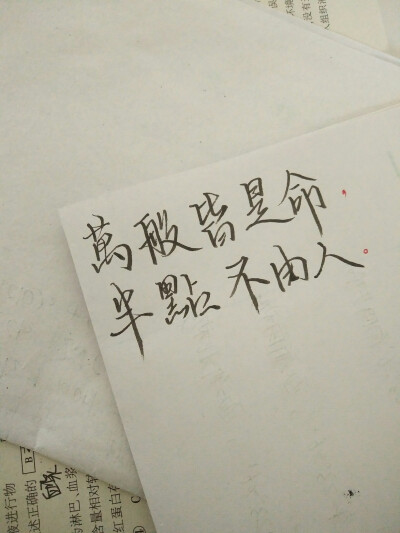 萬般皆是命，
半點不由人。
液进行物
述正确的
B
为淋巴、血浆
含量相对较
红蛋白存
C